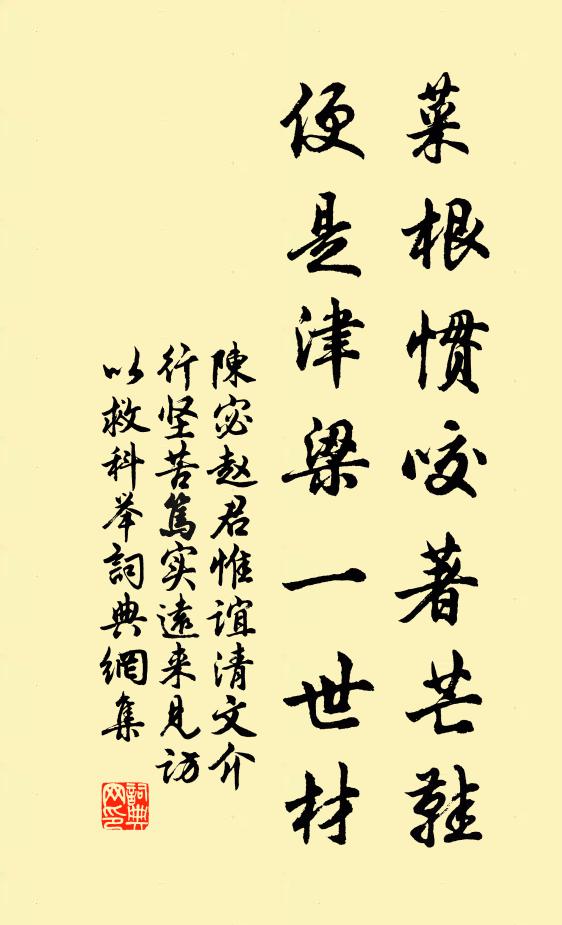 菜根惯咬著芒鞋
便是津梁一世材
陳宓赵君惟谊清文介
行坚苦篤实遠来见访
以救科举詞典網集
詞典网印